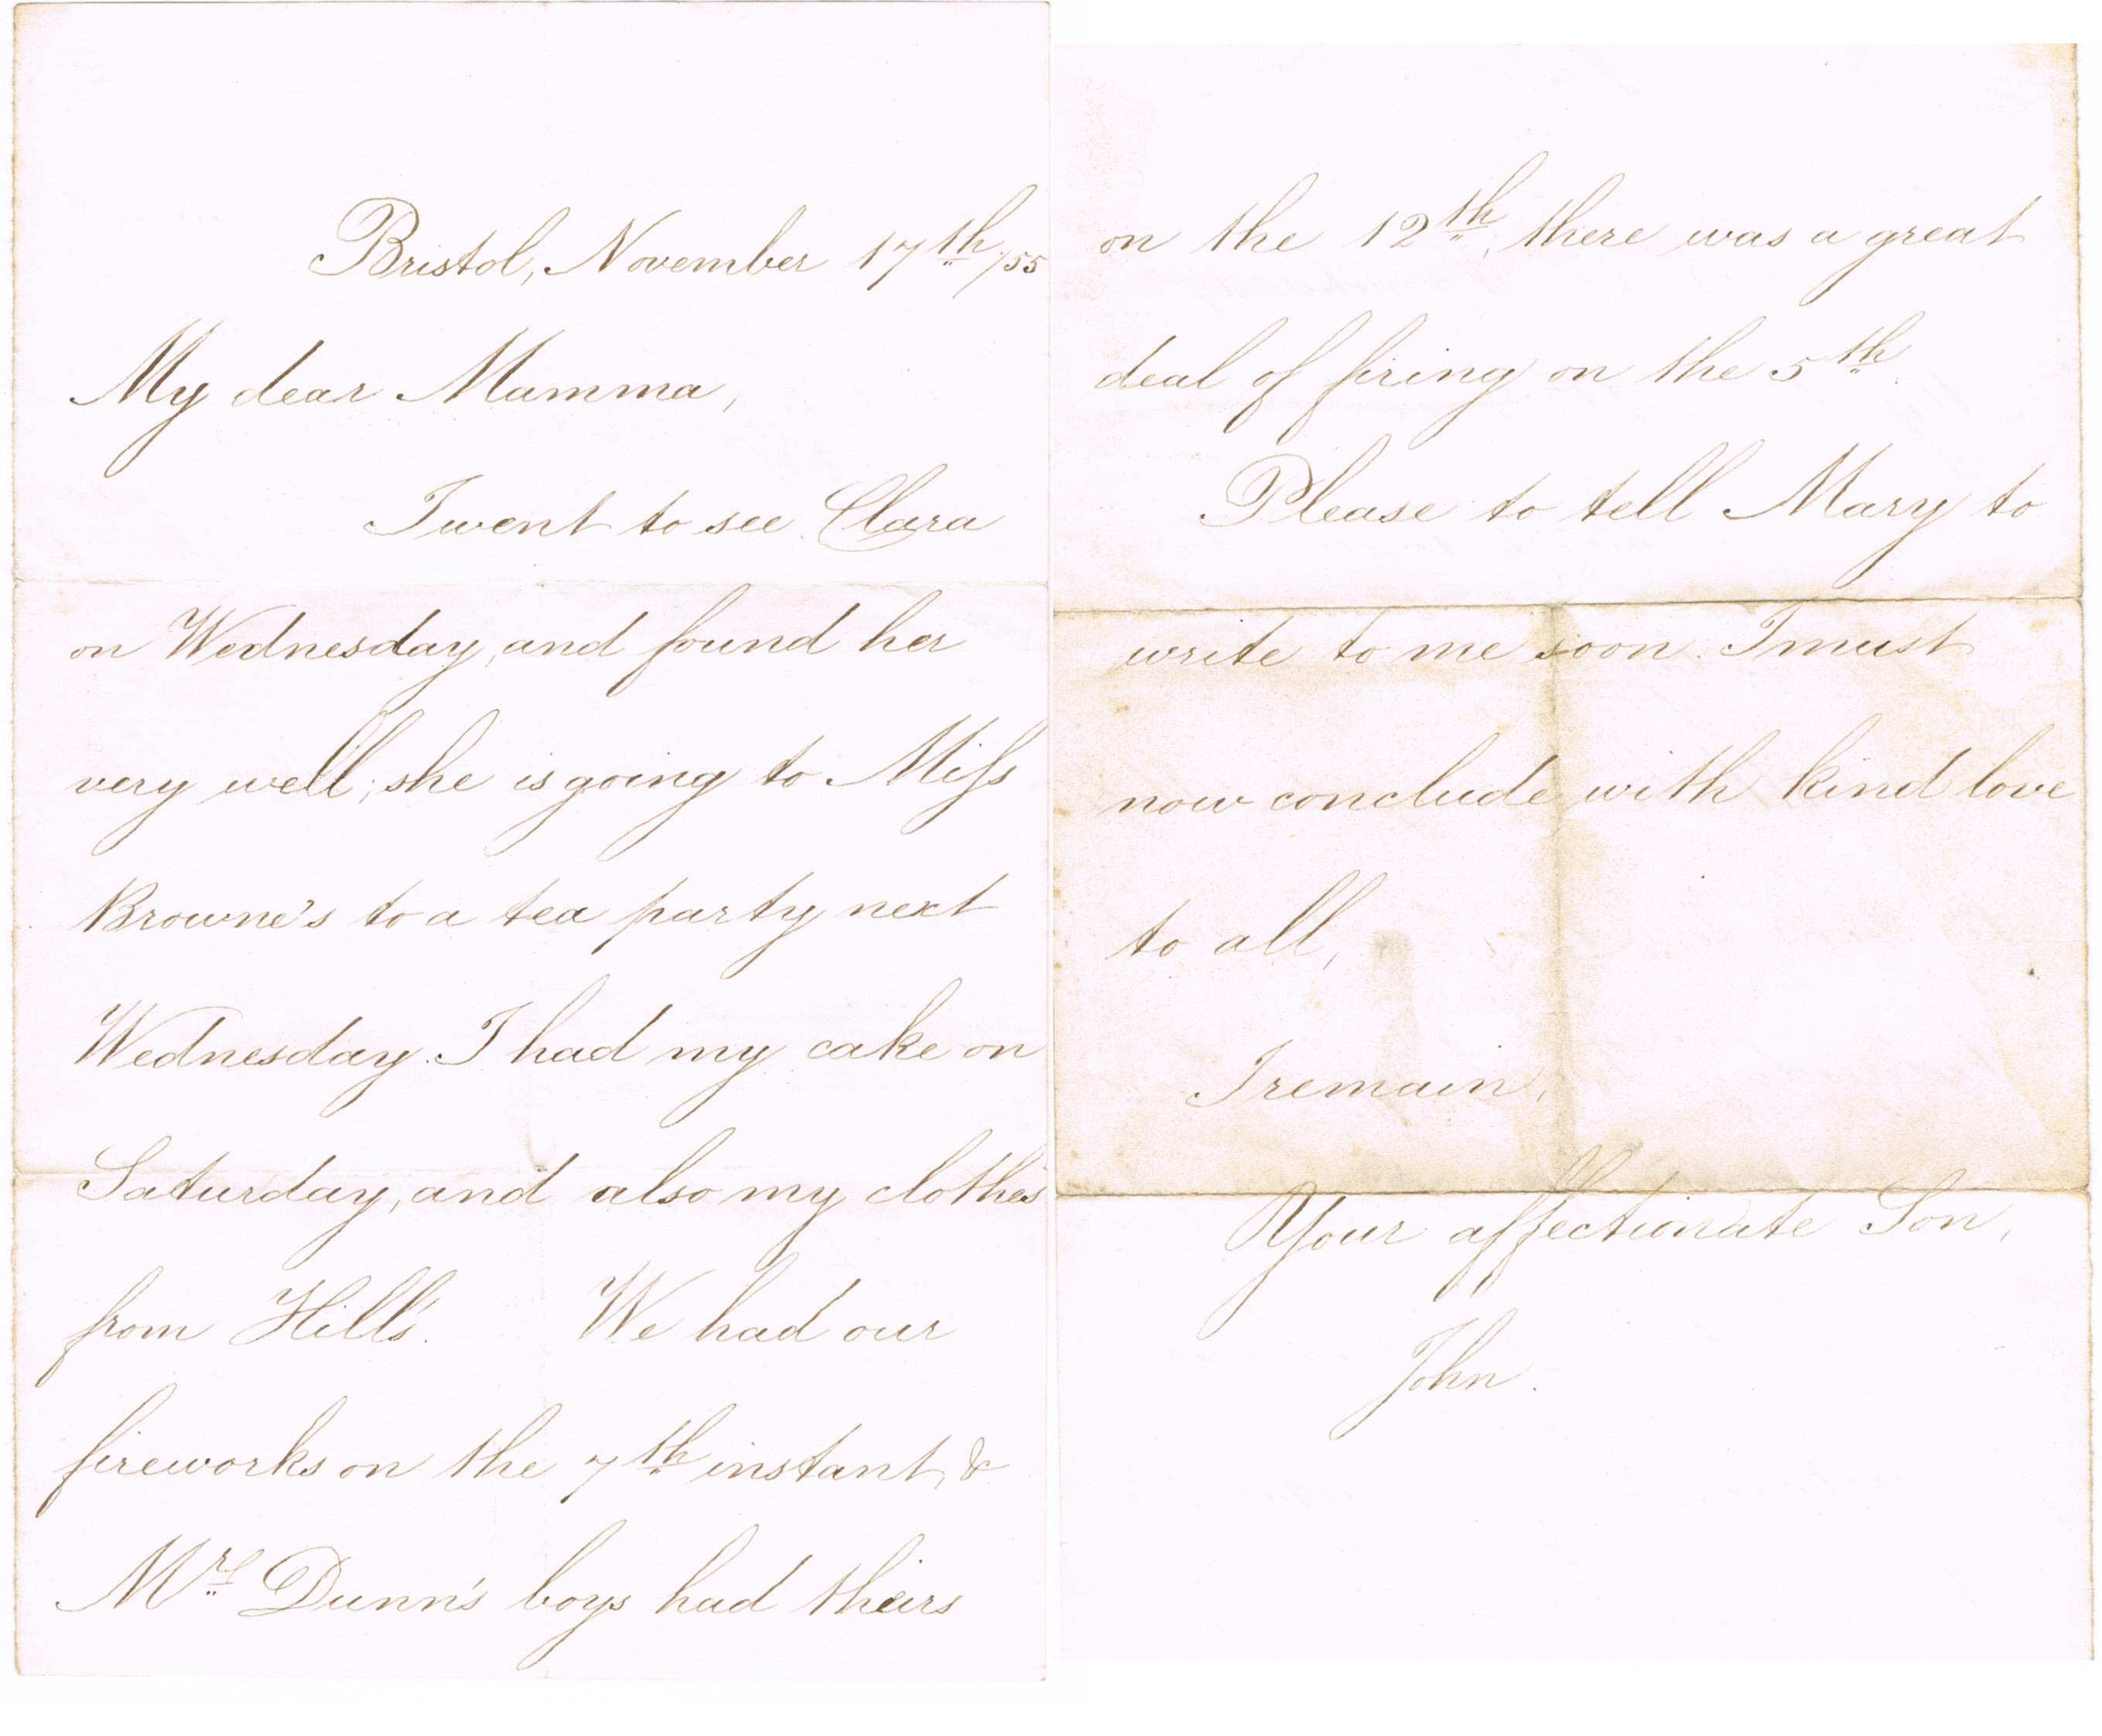 Bristol, November 17th /55
My dear Mamma,
I went to see Clara
on Wednesday, and found her
very well; she is going to Miſs
Browne's to a tea party next
Wednesday. I had my cake on
Saturday, and also my clothes
from Hill's. We had our
fireworks on the 7th instant, &
Mrs Dunn's boys had theirs
on the 12th, there was a great
deal of firing on the 5th.
Please to tell Mary to
write to me soon. I must
now conclude with kind love
to all,
I remain,
Your affectionate Son,
John.